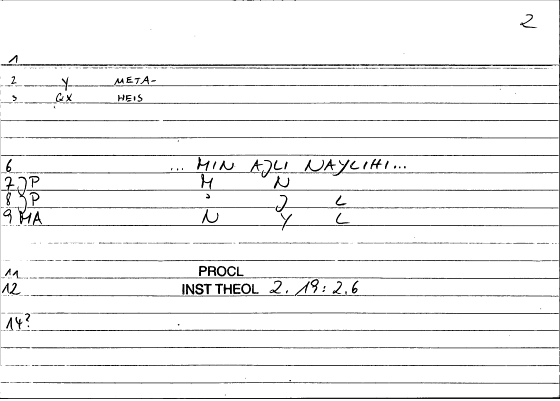 2
1
2 Y META-
3 GX HEIS
6 ... MIN AJLI NAYLIHI...
7 JP M N
8 JP ' J L
9 MA N Y L
11 PROCL
12 INST THEOL 2. 19: 2.6
14?